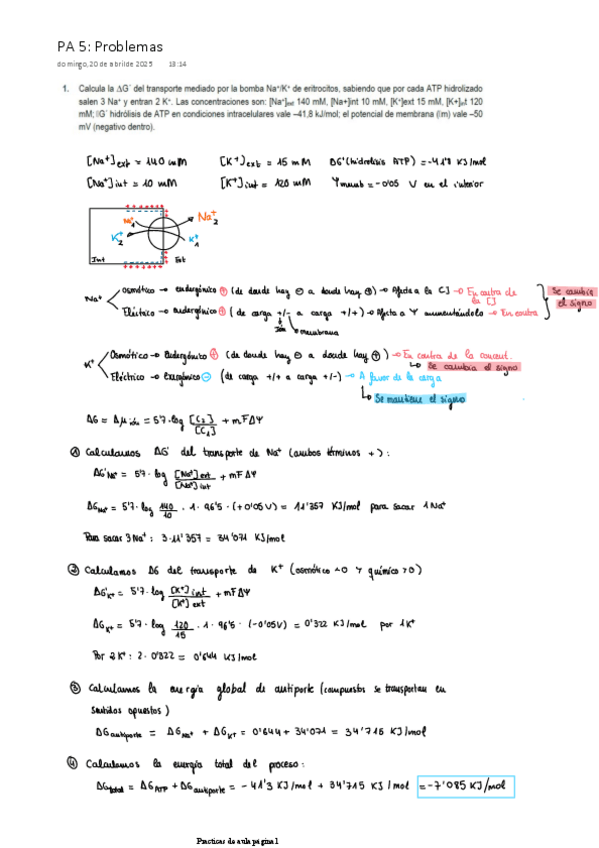 PA 5: Problemas
domingo, 20 de abril de 2025 18:14
1. Calcula la ΔG´ del transporte mediado por la bomba Na⁺/K⁺ de eritrocitos, sabiendo que por cada ATP hidrolizado
salen 3 Na⁺ y entran 2 K⁺. Las concentraciones son: [Na⁺]ext 140 mM, [Na+]int 10 mM, [K⁺]ext 15 mM, [K+]int 120
mM; G´ hidrólisis de ATP en condiciones intracelulares vale –41,8 kJ/mol; el potencial de membrana (m) vale –50
mV (negativo dentro).
[Na⁺]ext = 140 mM [K⁺]ext = 15 mM ΔG'(hidrolisis ATP) = -41'8 KJ/mol
[Na⁺]int = 10 mM [K⁺]int = 120 mM Ψmemb = -0'05 V en el interior
Na⁺₁ Na⁺₂
K⁺₂ K⁺₁
Int Ext
Na⁺ Osmótico → endergónico ⊕ (de donde hay ⊖ a donde hay ⊕) → Afecta a la CJ → En contra de la CJ
Eléctrico → endergónico ⊕ (de carga +/- a carga +/+) → Afecta a Ψ aumentándolo → En contra
Se cambia el signo
membrana
K⁺ Osmótico → Endergónico ⊕ (de donde hay ⊖ a donde hay ⊕) → En contra de la concent.
↳ Se cambia el signo
Eléctrico → Exergónico ⊖ (de carga +/+ a carga +/-) → A favor de la carga
↳ Se mantiene el signo
ΔG = Δμ ión = 5'7·log [C₂]/[C₁] + mFΔΨ
① Calculamos ΔG' del transporte de Na⁺ (ambos términos +):
ΔG'Na⁺ = 5'7· log [Na⁺]ext/[Na⁺]int + mFΔΨ
ΔGNa⁺ = 5'7· log 140/10 . 1 · 96'5 · (+0'05V) = 11'357 KJ/mol para sacar 1 Na⁺
Para sacar 3Na⁺: 3·11'357 = 34'071 KJ/mol
② Calculamos ΔG del transporte de K⁺ (osmótico <0 y químico >0)
ΔG'K⁺ = 5'7·log [K⁺]int/[K⁺]ext + mFΔΨ
ΔGK⁺ = 5'7· log 120/15 . 1 · 96'5 · (-0'05V) = 0'322 KJ/mol por 1K⁺
Por 2K⁺: 2· 0'322 = 0'644 KJ/mol
③ Calculamos la energía global de antiporte (compuestos se transportan en
sentidos opuestos)
ΔGantiporte = ΔGNa⁺ + ΔGK⁺ = 0'644 + 34'071 = 34'715 KJ/mol
④ Calculamos la energía total del proceso:
ΔGtotal = ΔGATP + ΔGantiporte = -41'8 KJ/mol + 34'715 KJ/mol = -7'085 KJ/mol
Practicas de aula página 1